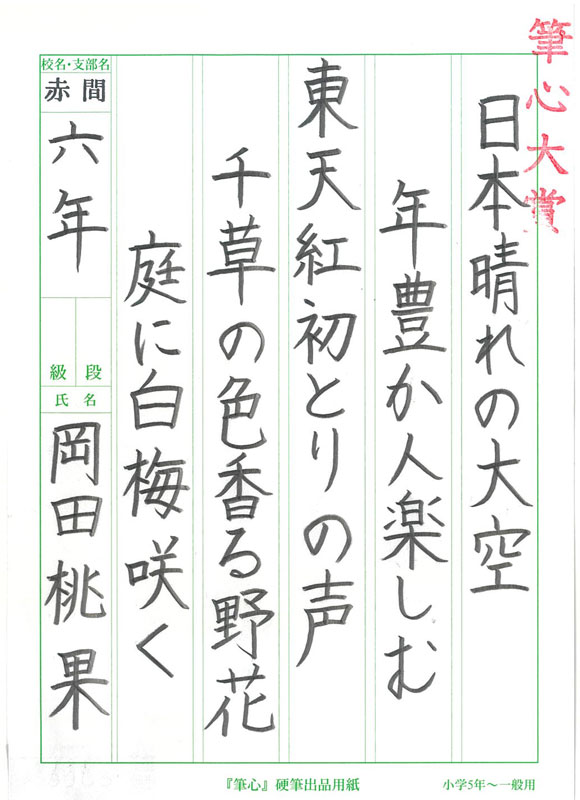 筆心大賞
日本晴れの大空
年豊か人楽しむ
東天紅初とりの声
千草の色香る野花
庭に白梅咲く
校名・支部名
赤間
六年
級 段
氏名
岡田桃果
『筆心』硬筆出品用紙
小学5年〜一般用